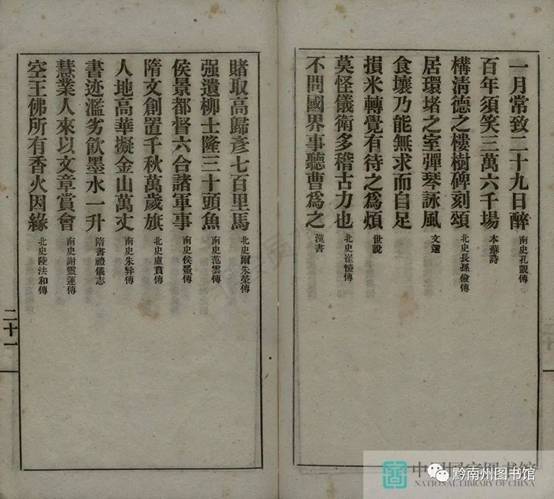 一月常致二十九日醉 南史孔覬傳
百年須笑三萬六千場 本蘇詩
構清德之樓樹碑刻頌 北史長孫儉傳
居環堵之室彈琴詠風 文選
食壤乃能無求而自足
損米轉覺有待之爲煩 世說
莫怪儀衛多稽古力也 北史崔㥄傳
不問國界事聽曹爲之 漢書
賭取高歸彥七百里馬 北史爾朱榮傳
强遺柳士隆三十頭魚 南史范雲傳
侯景都督六合諸軍事 南史侯景傳
隋文創置千秋萬歲旗 北史盧賁傳
人地高華擬金山萬丈 南史朱异傳
書迹濫劣飲墨水一升 隋書禮儀志
慧業人來以文章賞會 南史謝靈運傳
空王佛所有香火因緣 北史陸法和傳
二十一
中国国家图书馆
NATIONAL LIBRARY OF CHINA
黔南州图书馆